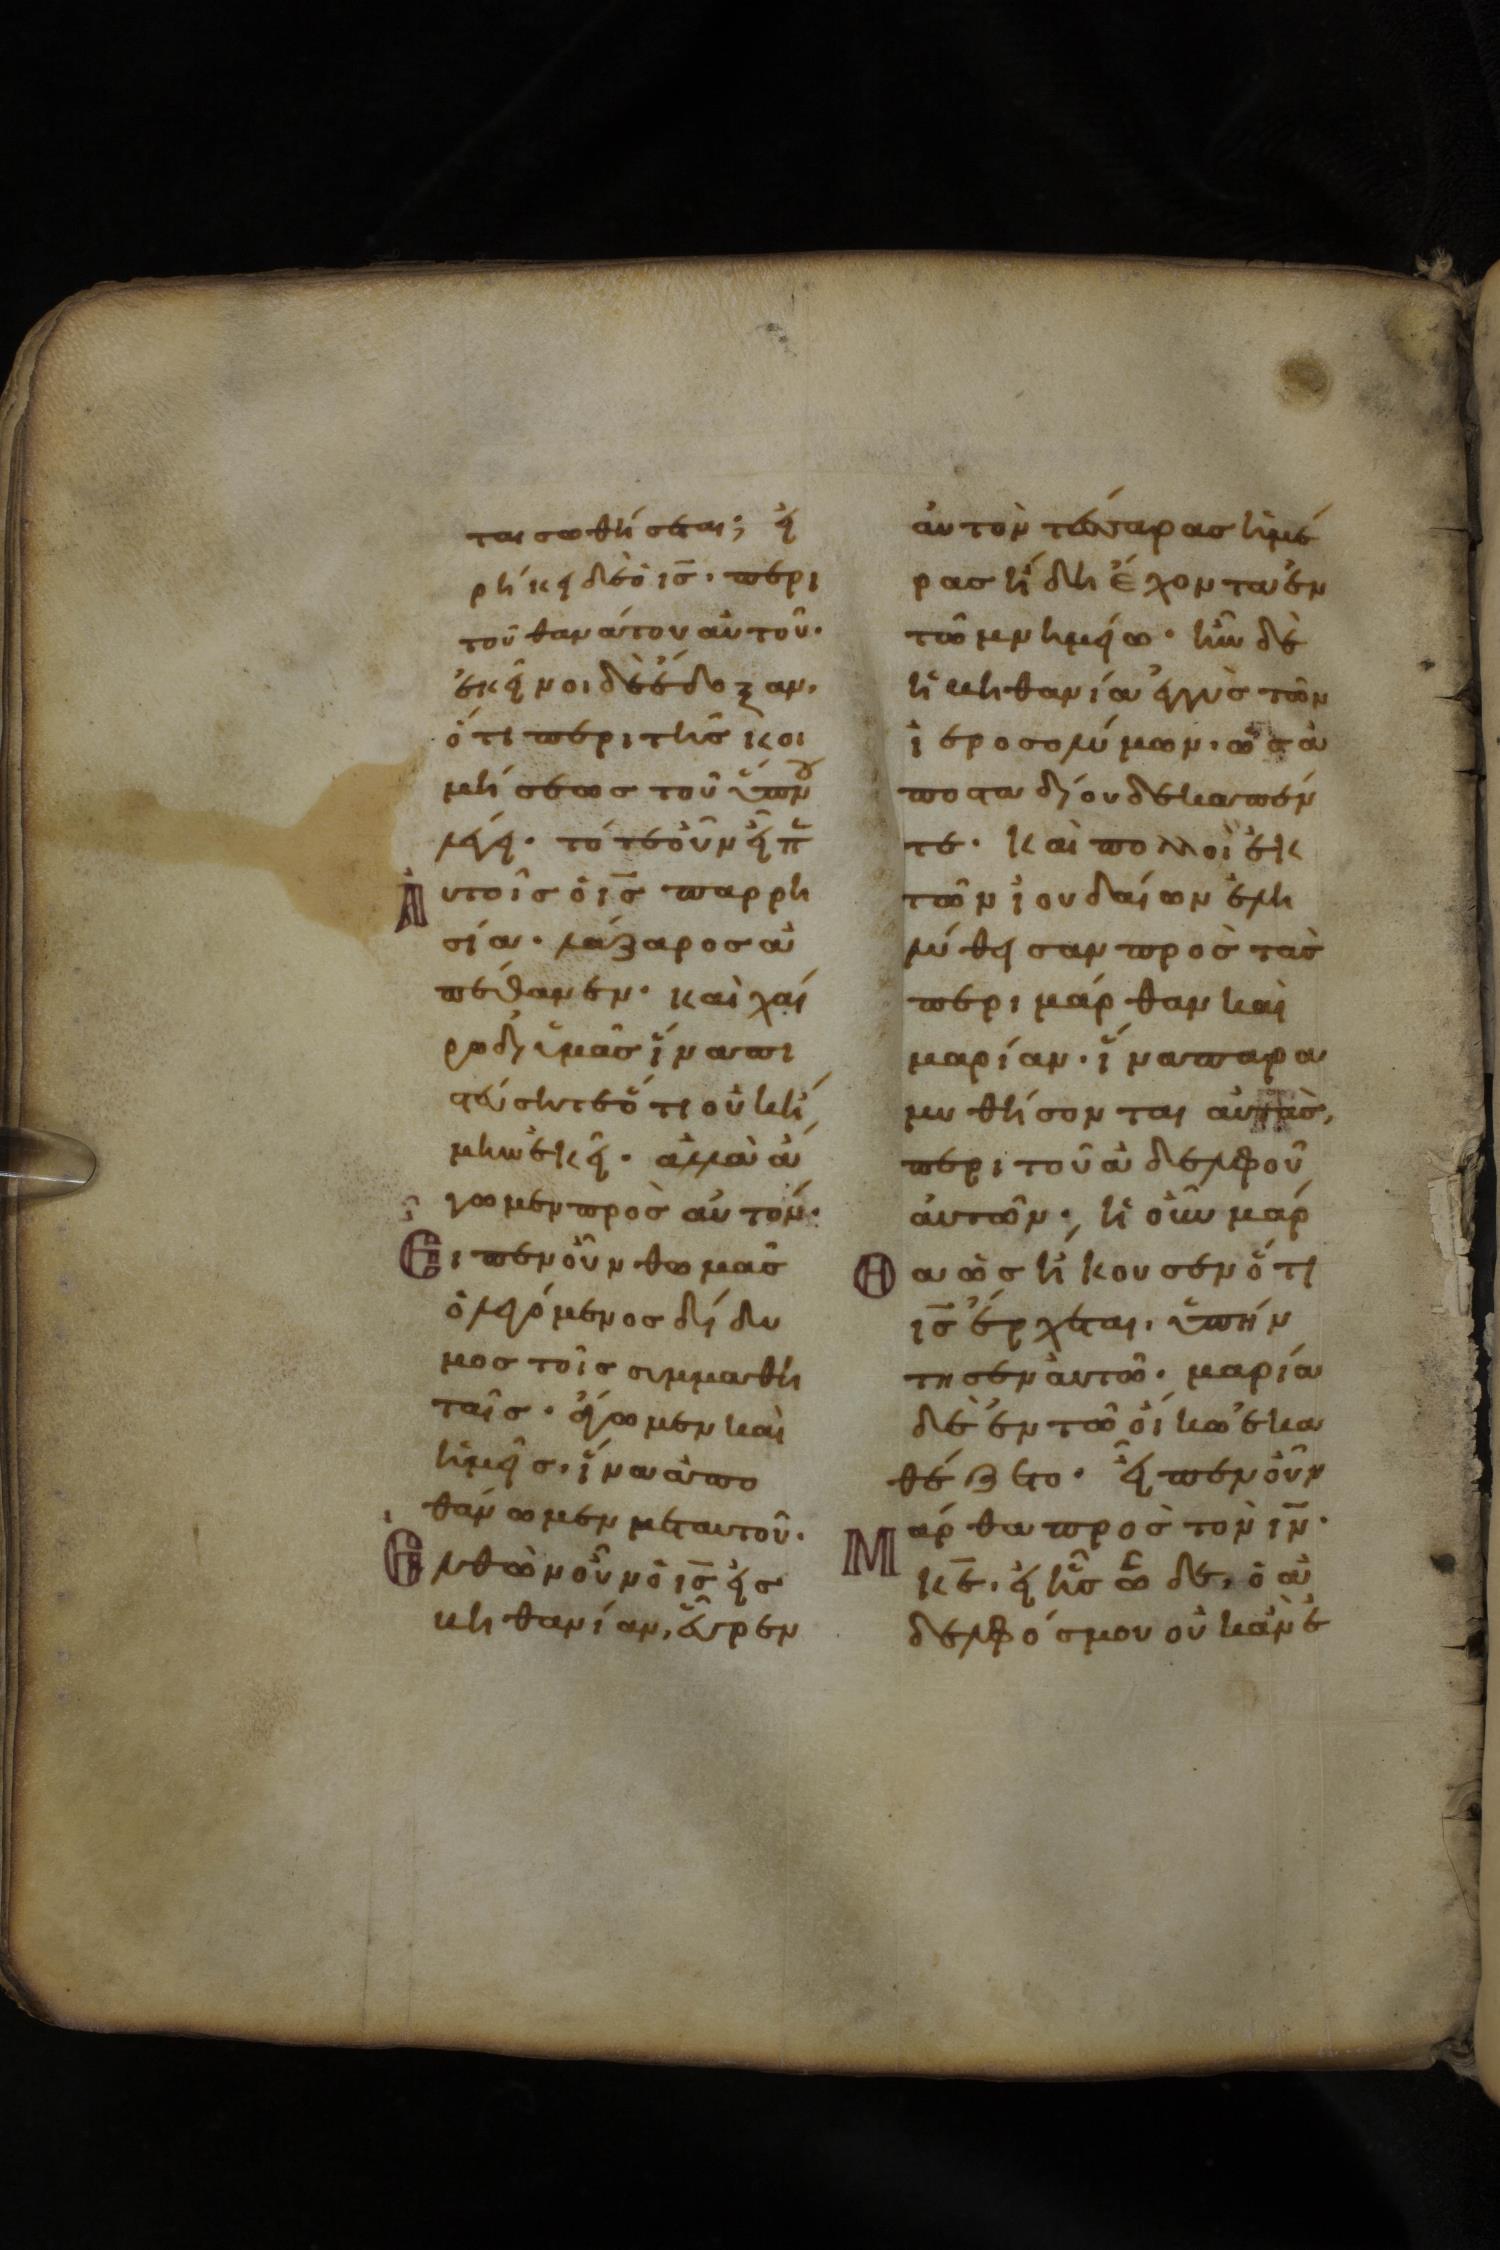 ται σωθήσεται; εἰ
ρήκει δὲ ὁ ις̅. περι
τοῦ θανάτου αὐτοῦ.
ἐκεῖνοι δὲ ἔδοξαν,
ὅτι περι τῆς κοι
μήσεως τοῦ ὕπνου
λέγει. τότε οὖν εἶπε̅
Αὐτοῖς ὁ ις̅ παρρη
σία. λάζαρος ἀ
πέθανεν. καὶ χαί
ρω δι ὑμᾶς ἵνα πι
στεύσητε ὅτι οὐκ ἤ
μην ἐκεῖ. ἀλλὰ ἄ
γωμεν προς αὐτόν.
Εἶπεν οὖν θωμᾶς
ὁ λεγόμενος δίδυ
μος τοῖς συμμαθη
ταῖς. ἄγωμεν καὶ
ἡμεῖς. ἵνα ἀπο
θάνωμεν μεταυτοῦ.
Ελθὼν οὖν ὁ ις̅ εἰς
βηθανίαν, εὗρεν
αὐτὸν τέσσαρας ἡμέ
ρας ἤδη ἔχοντα ἐν
τῶ μνημείω. ἦν δὲ
ἡ βηθανία ἐγγὺς τῶν
ἱεροσολύμων. ὡς ἀ
πο σταδίου δεκαπέν
τε. καὶ πολλοὶ ἐκ
τῶν ἰουδαίων ἐλη
λύθεισαν πρὸς τὰς
περι μάρθαν καὶ
μαρίαν. ἵνα παρα
μυθήσονται αὐτὰς,
περι τοῦ ἀδελφοῦ
αὐτῶν. ἡ οὖν μάρ
Θα ὡς ἤκουσεν ὅτι
ις̅ ἔρχεται. ὑπήν
τησεν αὐτῶ. μαρία
δὲ ἐν τῶ οἴκω ἐκα
θέζετο. εἶπεν οὖν
Μάρθα πρὸς τὸν ιν̅.
κε̅. εἰ ἦς ὧδε, ὁ ἀ
δελφός μου οὐκ ἂν ἐ